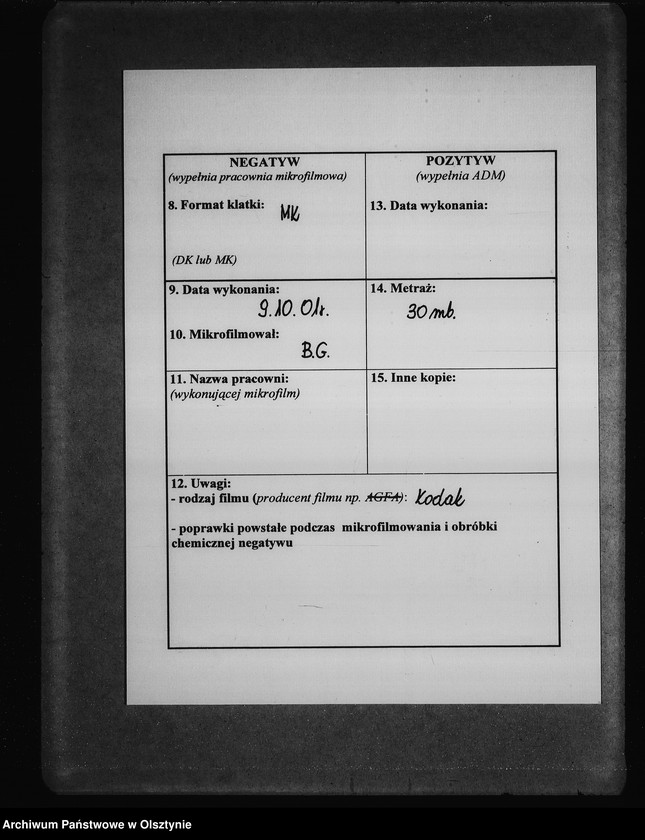 NEGATYW
(wypełnia pracownia mikrofilmowa)
8. Format klatki: MK
(DK lub MK)
POZYTYW
(wypełnia ADM)
13. Data wykonania:
9. Data wykonania:
9.10.01r.
10. Mikrofilmował:
B.G.
14. Metraż:
30 mb.
11. Nazwa pracowni:
(wykonującej mikrofilm)
15. Inne kopie:
12. Uwagi:
- rodzaj filmu (producent filmu np. AGFA): Kodak
- poprawki powstałe podczas mikrofilmowania i obróbki
chemicznej negatywu
Archiwum Państwowe w Olsztynie